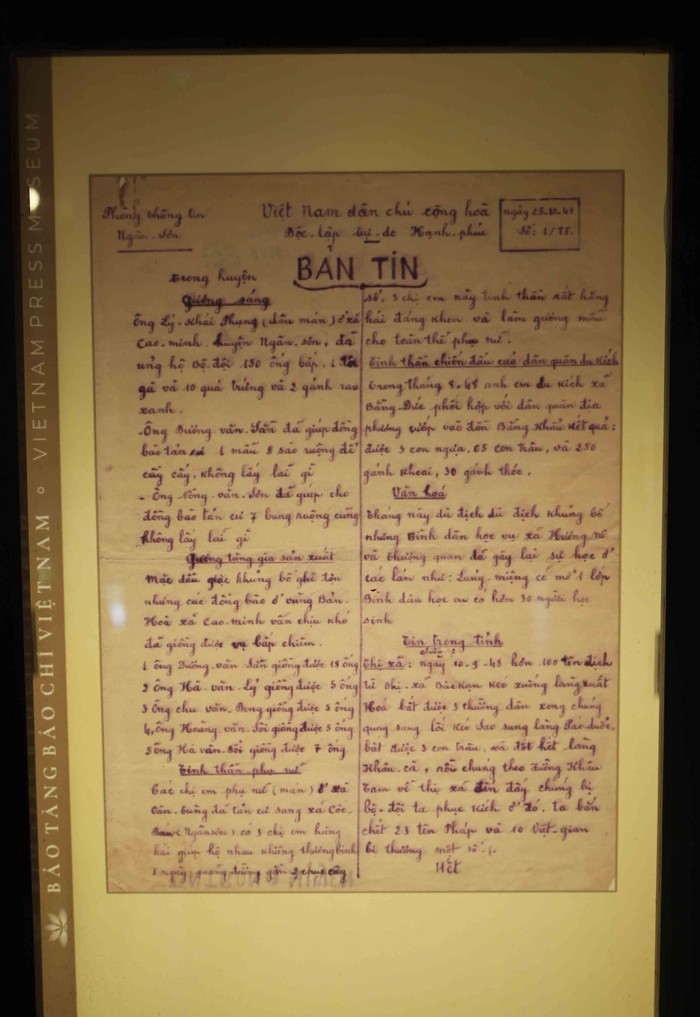 BẢO TÀNG BÁO CHÍ VIỆT NAM ○ VIETNAM PRESS MUSEUM
Phòng thông tin
Ngân-Sơn
Việt Nam dân chủ cộng hoà
Độc-lập tự-do Hạnh-phúc
ngày 25-10-48
Số: 1/TT.
BẢN TIN
Trong huyện
Gương sáng
Ông Lý-Khái Phụng (dân mán) ở xã
Cao-minh huyện Ngân-sơn, đã
ủng hộ Bộ-đội 150 ống bắp, 1 đôi
gà và 10 quả trứng và 2 gánh rau
xanh.
-Ông Dương văn-Tấn đã giúp đồng
bào tản cư 1 mẫu 8 sào ruộng để
cầy cấy, không lấy lãi gì
- Ông Nông-văn-Sơn đã giúp cho
đồng bào tản cư 7 bung ruộng cũng
không lấy lãi gì
Gương tăng gia sản xuất
Mặc dầu giặc khủng bố ghê tởn
nhưng các đồng bào ở vùng Bản-
Hoà xã Cao-minh vẫn chịu khó
đã giồng được vụ bắp chiêm.
1 ông Dương-văn-Tấn giồng được 18 ống
2 Ông Hà-văn-Lý giồng được 5 ống
3 Ông chu-văn-Beng giồng được 5 ống
4, ông Hoàng-văn-Tôi giồng được 5 ống
5 ông Hà văn-Sôi giồng được 7 ống
Tinh thần phụ nữ
Các chị em phụ nữ (mán) ở xã
Vân-Tùng đã tản cư sang xã Cốc-
Đán (Ngânsơn) có 3 chị em hăng
hái giúp hộ nhau những thương binh
1 ngày quãng đường gần
số, 3 chị em này tinh thần rất hăng
hái đáng khen và làm gương mẫu
cho toàn thể phụ nữ.
Tinh thần chiến đấu của dân quân du kích
Trong tháng 8-48 anh em du kích xã
Bằng-Đức phối hợp với dân quân địa
phương cướp vào đồn Bằng Khẩu kết quả:
được 3 con ngựa, 65 con trâu, và 250
gánh khoai, 30 gánh thóc.
Văn hoá
Tháng này dù địch dù địch khủng bố
nhưng Bình dân học vụ xã Hương-nê
và thượng quan đã gây lại sự học ở
các lán như: Lũng-miệng có mở 1 lớp
Bình dân học vụ có hơn 30 người học
sinh
Tin trong tỉnh
Thị xã: ngày 10-9-48 hơn 100 tên địch
từ thị-xã Bắc Kạn kéo xuống làng xuất
Hoá bắt được 3 thường dân xong chúng
quay sang lối Kéo Sao sang làng
bắt được 3 con trâu, và đốt hết làng
Khâu-cà, rồi chúng theo đường Khâu
Tam về thị xã đến đấy, chúng bị
bộ-đội ta phục kích ở đó, ta bắn
chết 23 tên Pháp và 10 Việt-gian
bị thương một số./.
Hết